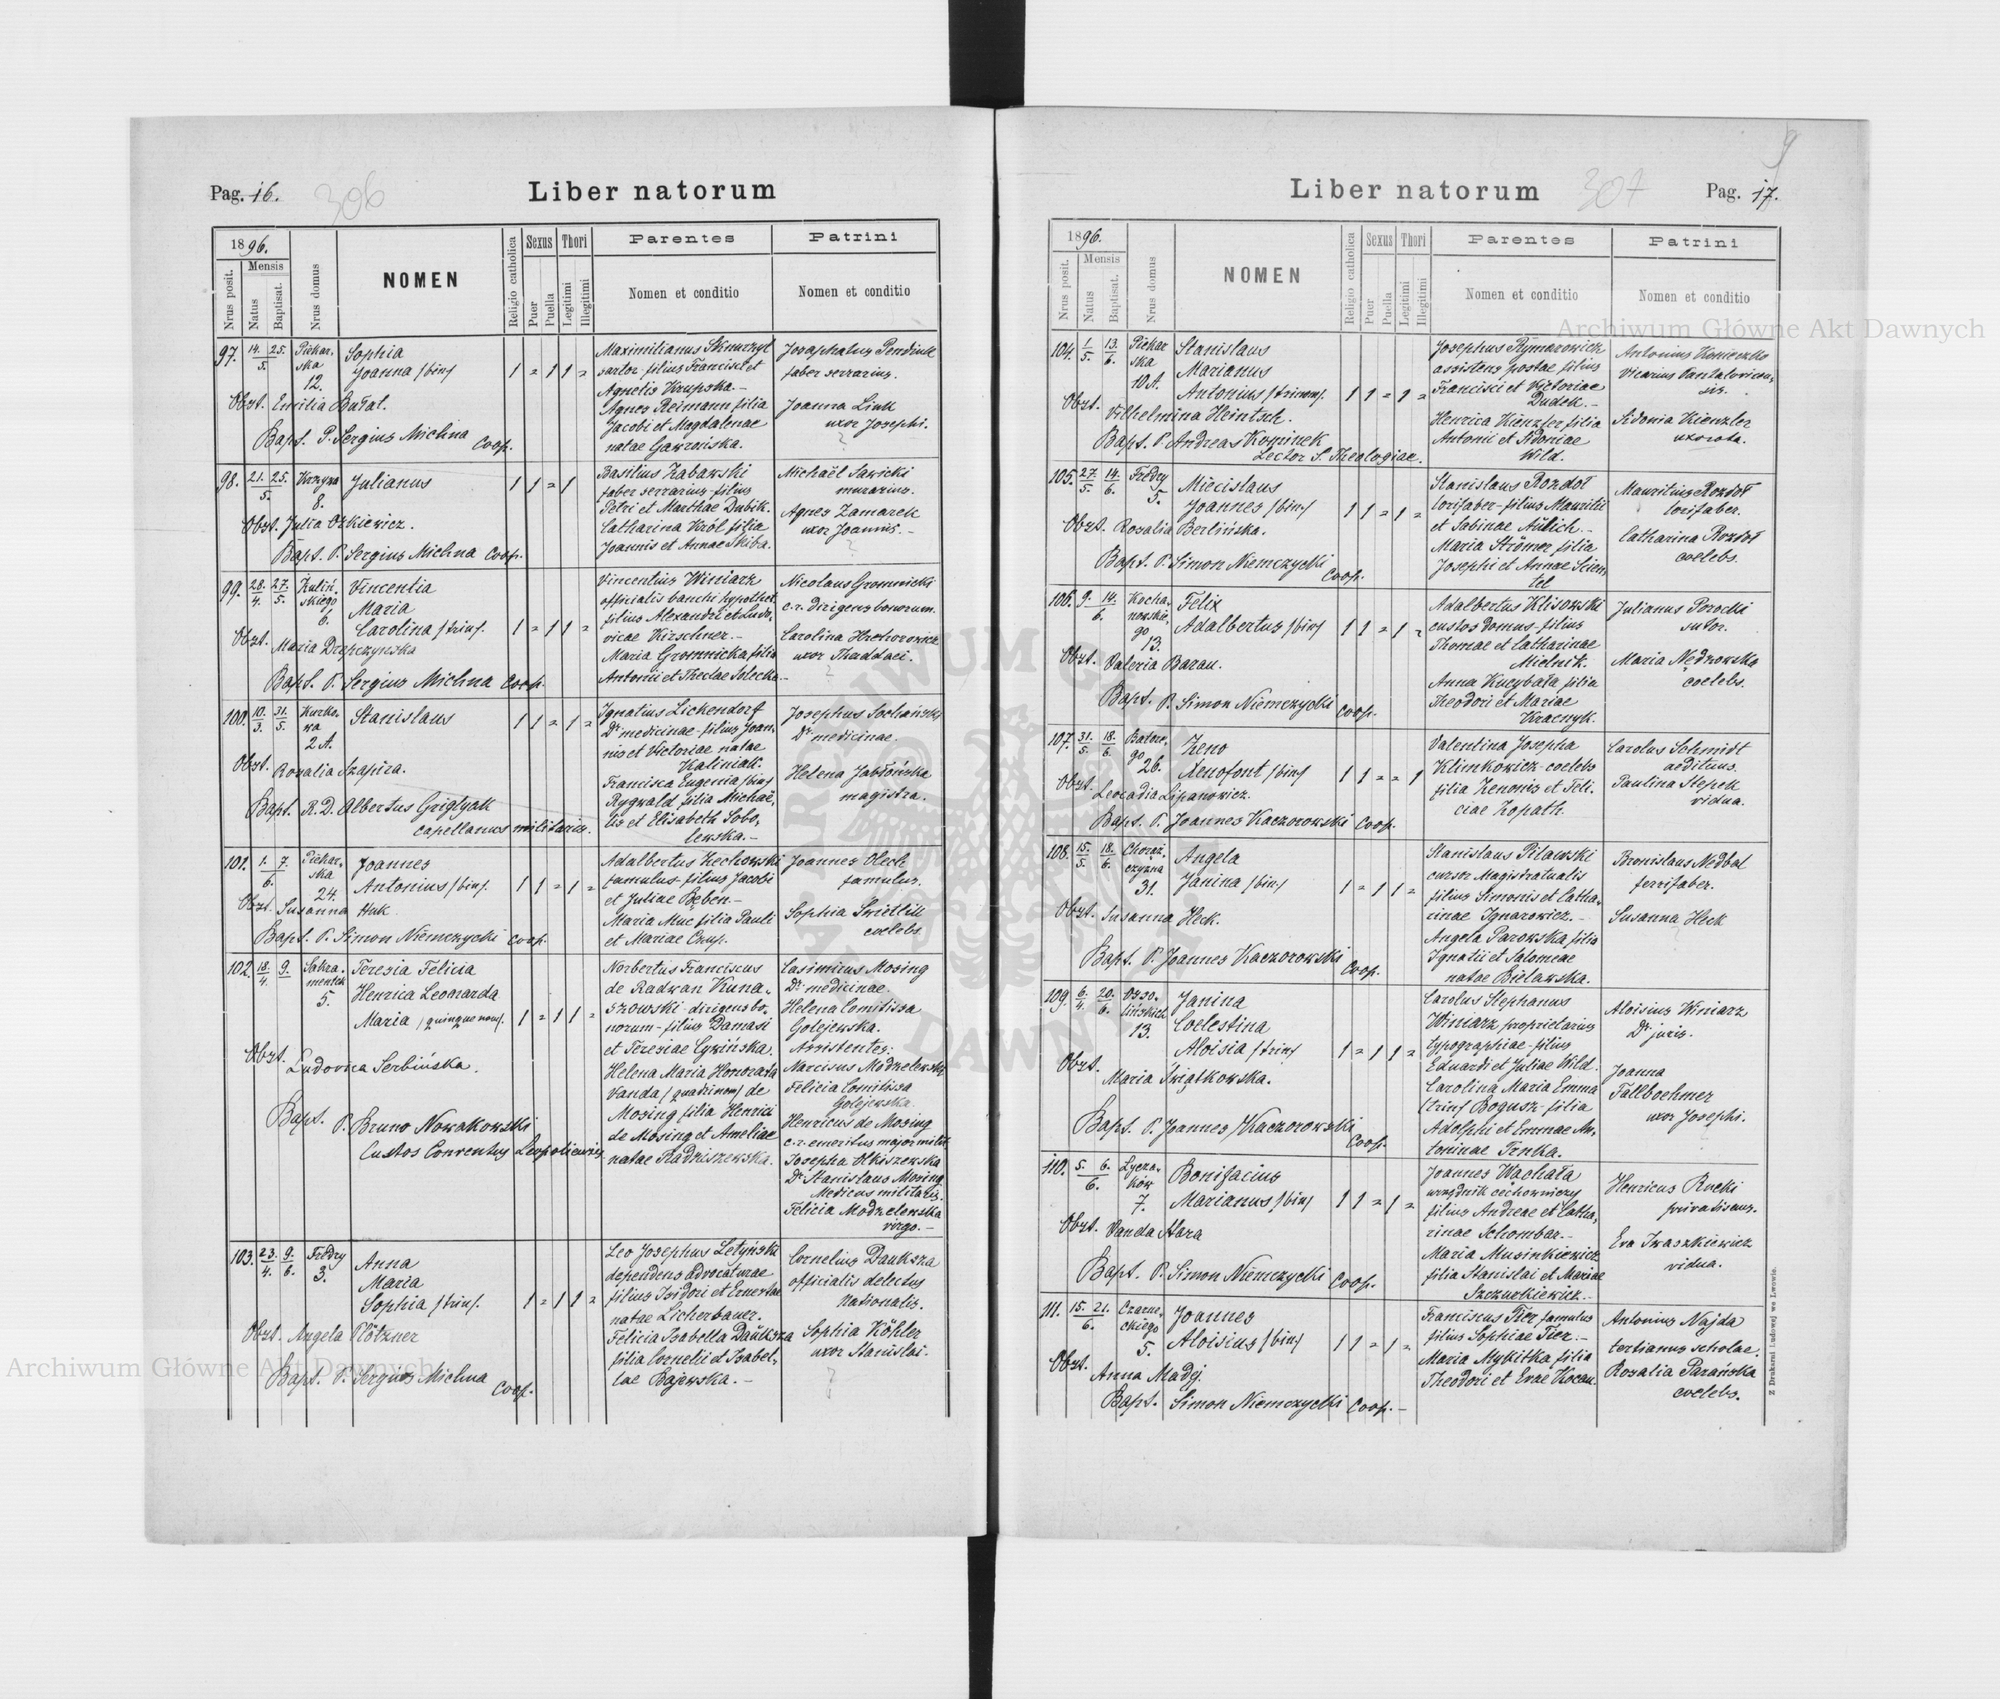 Pag. 16.
306
Liber natorum
1896.
Nrus posit.
Mensis
Natus
Baptisat.
Nrus domus
NOMEN
Religio catholica
Sexus
Puer
Puella
Thori
Legitimi
Illegitimi
Parentes
Nomen et conditio
Patrini
Nomen et conditio
97. 14. 25. 5.
Piekar-
ska
12.
Sophia
Joanna /bin/
1 = 1 1 =
Obst. Emilia Bułat.
Bapt. P. Sergius Michna Coop.
Maximilianus
sartor filius Francisci et
Agnetis Krupska. –
Agnes Reimann filia
Jacobi et Magdalenae
natae Gawrońska.
Josaphatus
faber serrarius.
Joanna Link
uxor Josephi.
98. 21. 25. 5.
Krzywa
8.
Julianus
1 1 = 1
Obst. Julia Ozkiewicz.
Bapt. P. Sergius Michna Coop.
Basilius Zabawski
faber serrarius filius
Petri et Marthae Dubik.
Catharina Król filia
Joannis et Annae Skiba.
Michaël Sawicki
murarius.
Agnes Zamarek
uxor Joannis. –
99. 28. 4. 27. 5.
Zuliń-
skiego
6.
Vincentia
Maria
Carolina /trin/.
1 = 1 1 =
Obst. Maria Drapczynska
Bapt. P. Sergius Michna Coop.
Vincentius Winiarz
officialis banchi hypothet.
filius Alexandri et Ludo-
vicae Kirschner. –
Maria Gromnicka filia
Antonii et Theclae Solecka.
Nicolaus Gromnicki
c.r. dirigens bonorum.
Carolina Hrehorowicz
uxor Thaddaei.
100. 10. 3. 31. 5.
Kurko-
wa
2 A.
Stanislaus
1 1 = 1 =
Obst. Rosalia Szapira.
Bapt. R. D. Albertus Griglyak
capellanus militaris.
Ignatius Lickendorf
Dr medicinae filius Joan-
nis et Victoriae natae
Kaliniak.
Francisca Eugenia /bin/
Rygwald filia Michaë-
lis et Elisabeth Sobo-
lewska. –
Josephus Sochański
Dr medicinae.
Helena Jabłońska
magistra.
101. 1. 7. 6.
Piekar-
ska
24.
Joannes
Antonius /bin/.
1 1 = 1 =
Obst. Susanna Huk
Bapt. P. Simon Niemczycki Coop.
Adalbertus Zechowski
famulus filius Jacobi
et Juliae Bęben –
Maria Muc filia Pauli
et Mariae Czup.
Joannes Olech
famulus.
Sophia Świetlik
coelebs
102. 18. 4. 9.
Sakra-
mentek
5.
Teresia Felicia
Henrica Leonarda
Maria /quinquenom/.
1 = 1 1 =
Obst. Ludovica Serbińska.
Bapt. P. Bruno Nowakowski
Custos Conventus Leopoliensis
Norbertus Franciscus
de Radwan Kuna-
szowski dirigens bo-
norum filius Damasi
et Teresiae Cywińska.
Helena Maria Honorata
Vanda /quadrinom/ de
Mosing filia Henrici
de Mosing et Ameliae
natae Radziszewska.
Casimirus Mosing
Dr medicinae.
Helena Comitissa
Golejewska.
Assistentes:
Narcisus Modzelewski
Felicia Comitissa
Golejewska
Henricus de Mosing
c.r. emeritus major milit.
Josepha Olkiszewska
Dr Stanislaus Mosing
Medicus militaris.
Felicia Modzelewska
virgo. –
103. 23. 4. 9. 6.
Fredry
3.
Anna
Maria
Sophia /trin/.
1 = 1 1 =
Obst. Angela Plötzner
Bapt. P. Sergius Michna Coop.
Leo Josephus Letyński
dependens advocaturae
filius Isidori et Ernestae
natae Licherbauer.
Felicia Isabella Daüksza
filia Cornelii et Isabel-
lae Bajewska. –
Cornelius Dauksza
officialis delectus
Nationalis.
Sophia Köhler
uxor Stanislai.
Liber natorum
307
Pag. 17.
9
1896.
Nrus posit.
Mensis
Natus
Baptisat.
Nrus domus
NOMEN
Religio catholica
Sexus
Puer
Puella
Thori
Legitimi
Illegitimi
Parentes
Nomen et conditio
Patrini
Nomen et conditio
104. 1 5. 13. 6.
Piekar
ska
10 A.
Stanislaus
Marianus
Antonius /trinom/.
1 1 = 1 =
Obst. Vilhelmina Heintsch.
Bapt. P. Andreas Kominek
Lector S. Theologiae.
Josephus Rymarowicz
assistens postae filius
Francisci et Victoriae
Dudek. –
Henrica Kienzler filia
Antonii et Sidoniae
Wild.
Antonius
Vicarius Pantalovicen-
sis.
Sidonia Kienzler
uxorata.
105. 27. 5. 14. 6.
Fredry
5.
Miecislaus
Joannes /bin/
1 1 = 1 =
Obst. Rosalia Berlińska.
Bapt. P. Simon Niemczycki Coop.
Stanislaus Rozdoł
lorifaber filius Mauritii
et Sabinae Aülich. –
Maria Strömer filia
Josephi et Annae Scien-
tel
Mauritius Rozdoł
lorifaber.
Catharina Rozdoł
coelebs.
106. 9. 14. 6.
Kocha-
nowskie-
go
13.
Felix
Adalbertus /bin/
1 1 = 1 =
Obst. Valeria Baran.
Bapt. P. Simon Niemczycki Coop.
Adalbertus Klisowski
custos domus filius
Thomae et Catharinae
Mielnik.
Anna Kucybała filia
Theodori et Mariae
Kracnyk.
Julianus Porocki
sutor.
Maria Nędzowska
coelebs.
107. 31. 5. 18. 6.
Batore-
go
26.
Zeno
Xenofont /bin/
1 1 = = 1
Obst. Leocadia Lipanowicz.
Bapt. P. Joannes Kaczorowski Coop.
Valentina Josepha
Klimkowicz coelebs
filia Zenonis et Feli-
ciae Kopath.
Carolus Schmidt
aedituus.
Paulina Stepek
vidua.
108. 15. 5. 18. 6.
Chorąż-
czyzna
31.
Angela
Janina /bin/
1 = 1 1 =
Obst. Susanna Heck.
Bapt. P. Joannes Kaczorowski Coop.
Stanislaus Pilawski
cursor Magistratualis
filius Simonis et Catha-
rinae Ignarowicz. –
Angela Parowska filia
Ignatii et Salomeae
natae Bielawska.
Bronislaus Nedbal
ferrifaber.
Susanna Heck
109. 6. 4. 20. 6.
Osso-
lińskich
13.
Janina
Coelestina
Aloisia /trin/
1 = 1 1 =
Obst. Maria Świątkowska.
Bapt. P. Joannes Kaczorowski Coop.
Carolus Stephanus
Winiarz proprietarius
typographiae filius
Eduardi et Juliae Wild.
Carolina Maria Emma
/trin/ Bogusz filia
Adolphi et Emmae An-
toninae Trnka.
Aloisius Winiarz
Dr juris.
Joanna
Fallboehmer
uxor Josephi.
110. 5. 6. 6.
Łycza-
ków
7.
Bonifacius
Marianus /bin/
1 1 = 1 =
Obst. Vanda Stara
Bapt. P. Simon Niemczycki Coop.
Joannes Wachała
urzędnik cechowniczy
filius Andreae et Catha-
rinae Schombar. –
Maria Musinkiewicz
filia Stanislai et Mariae
Szczurkiewicz. –
Henricus Rucki
privatisans.
Eva Iwaszkiewicz
vidua.
111. 15. 21. 6.
Czarne-
ckiego
5.
Joannes
Aloisius /bin/
1 1 = 1 =
Obst. Anna Madej.
Bapt. Simon Niemczycki Coop. –
Franciscus Tier famulus
filius Sophiae Tier. –
Maria Mykitka filia
Theodori et Evae Kocan.
Antonius Najda
tertianus scholae.
Rosalia Parańska
coelebs.
Z Drukarni Ludowej we Lwowie.
Archiwum Główne Akt Dawnych
Archiwum Główne Akt Dawnych
ARCHIWUM GŁÓWNE AKT DAWNYCH